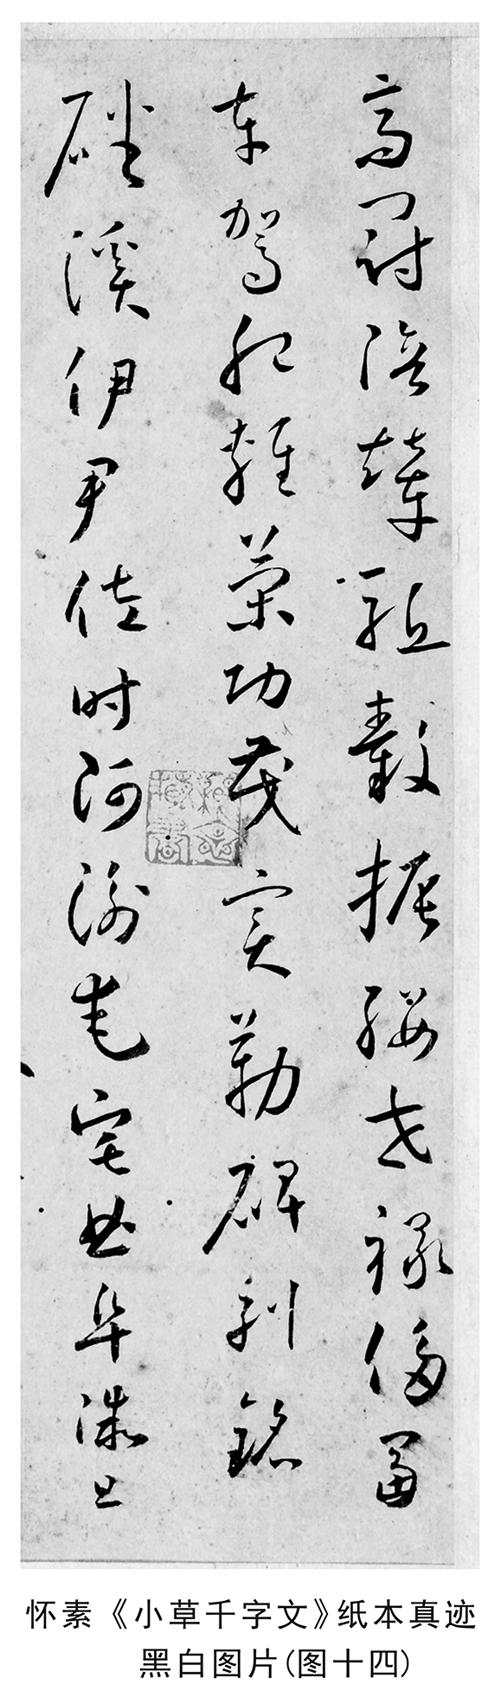 高冠陪輦驅轂振纓世祿侈富
車駕肥輕策功茂實勒碑刻銘
磻溪伊尹佐時阿衡奄宅曲阜微旦
怀素《小草千字文》纸本真迹
黑白图片(图十四)